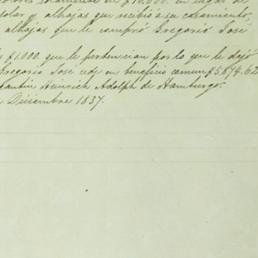 en lugar de
solar y alhajas que recibió a su casamiento,
alhajas que le compró Gregorio José
$1.000. que le pertenecian por lo que le dejó
Gregorio José cede en beneficio comun $5,874.62
Heinrich Adolph de Hamburgo.
Diciembre 1837.